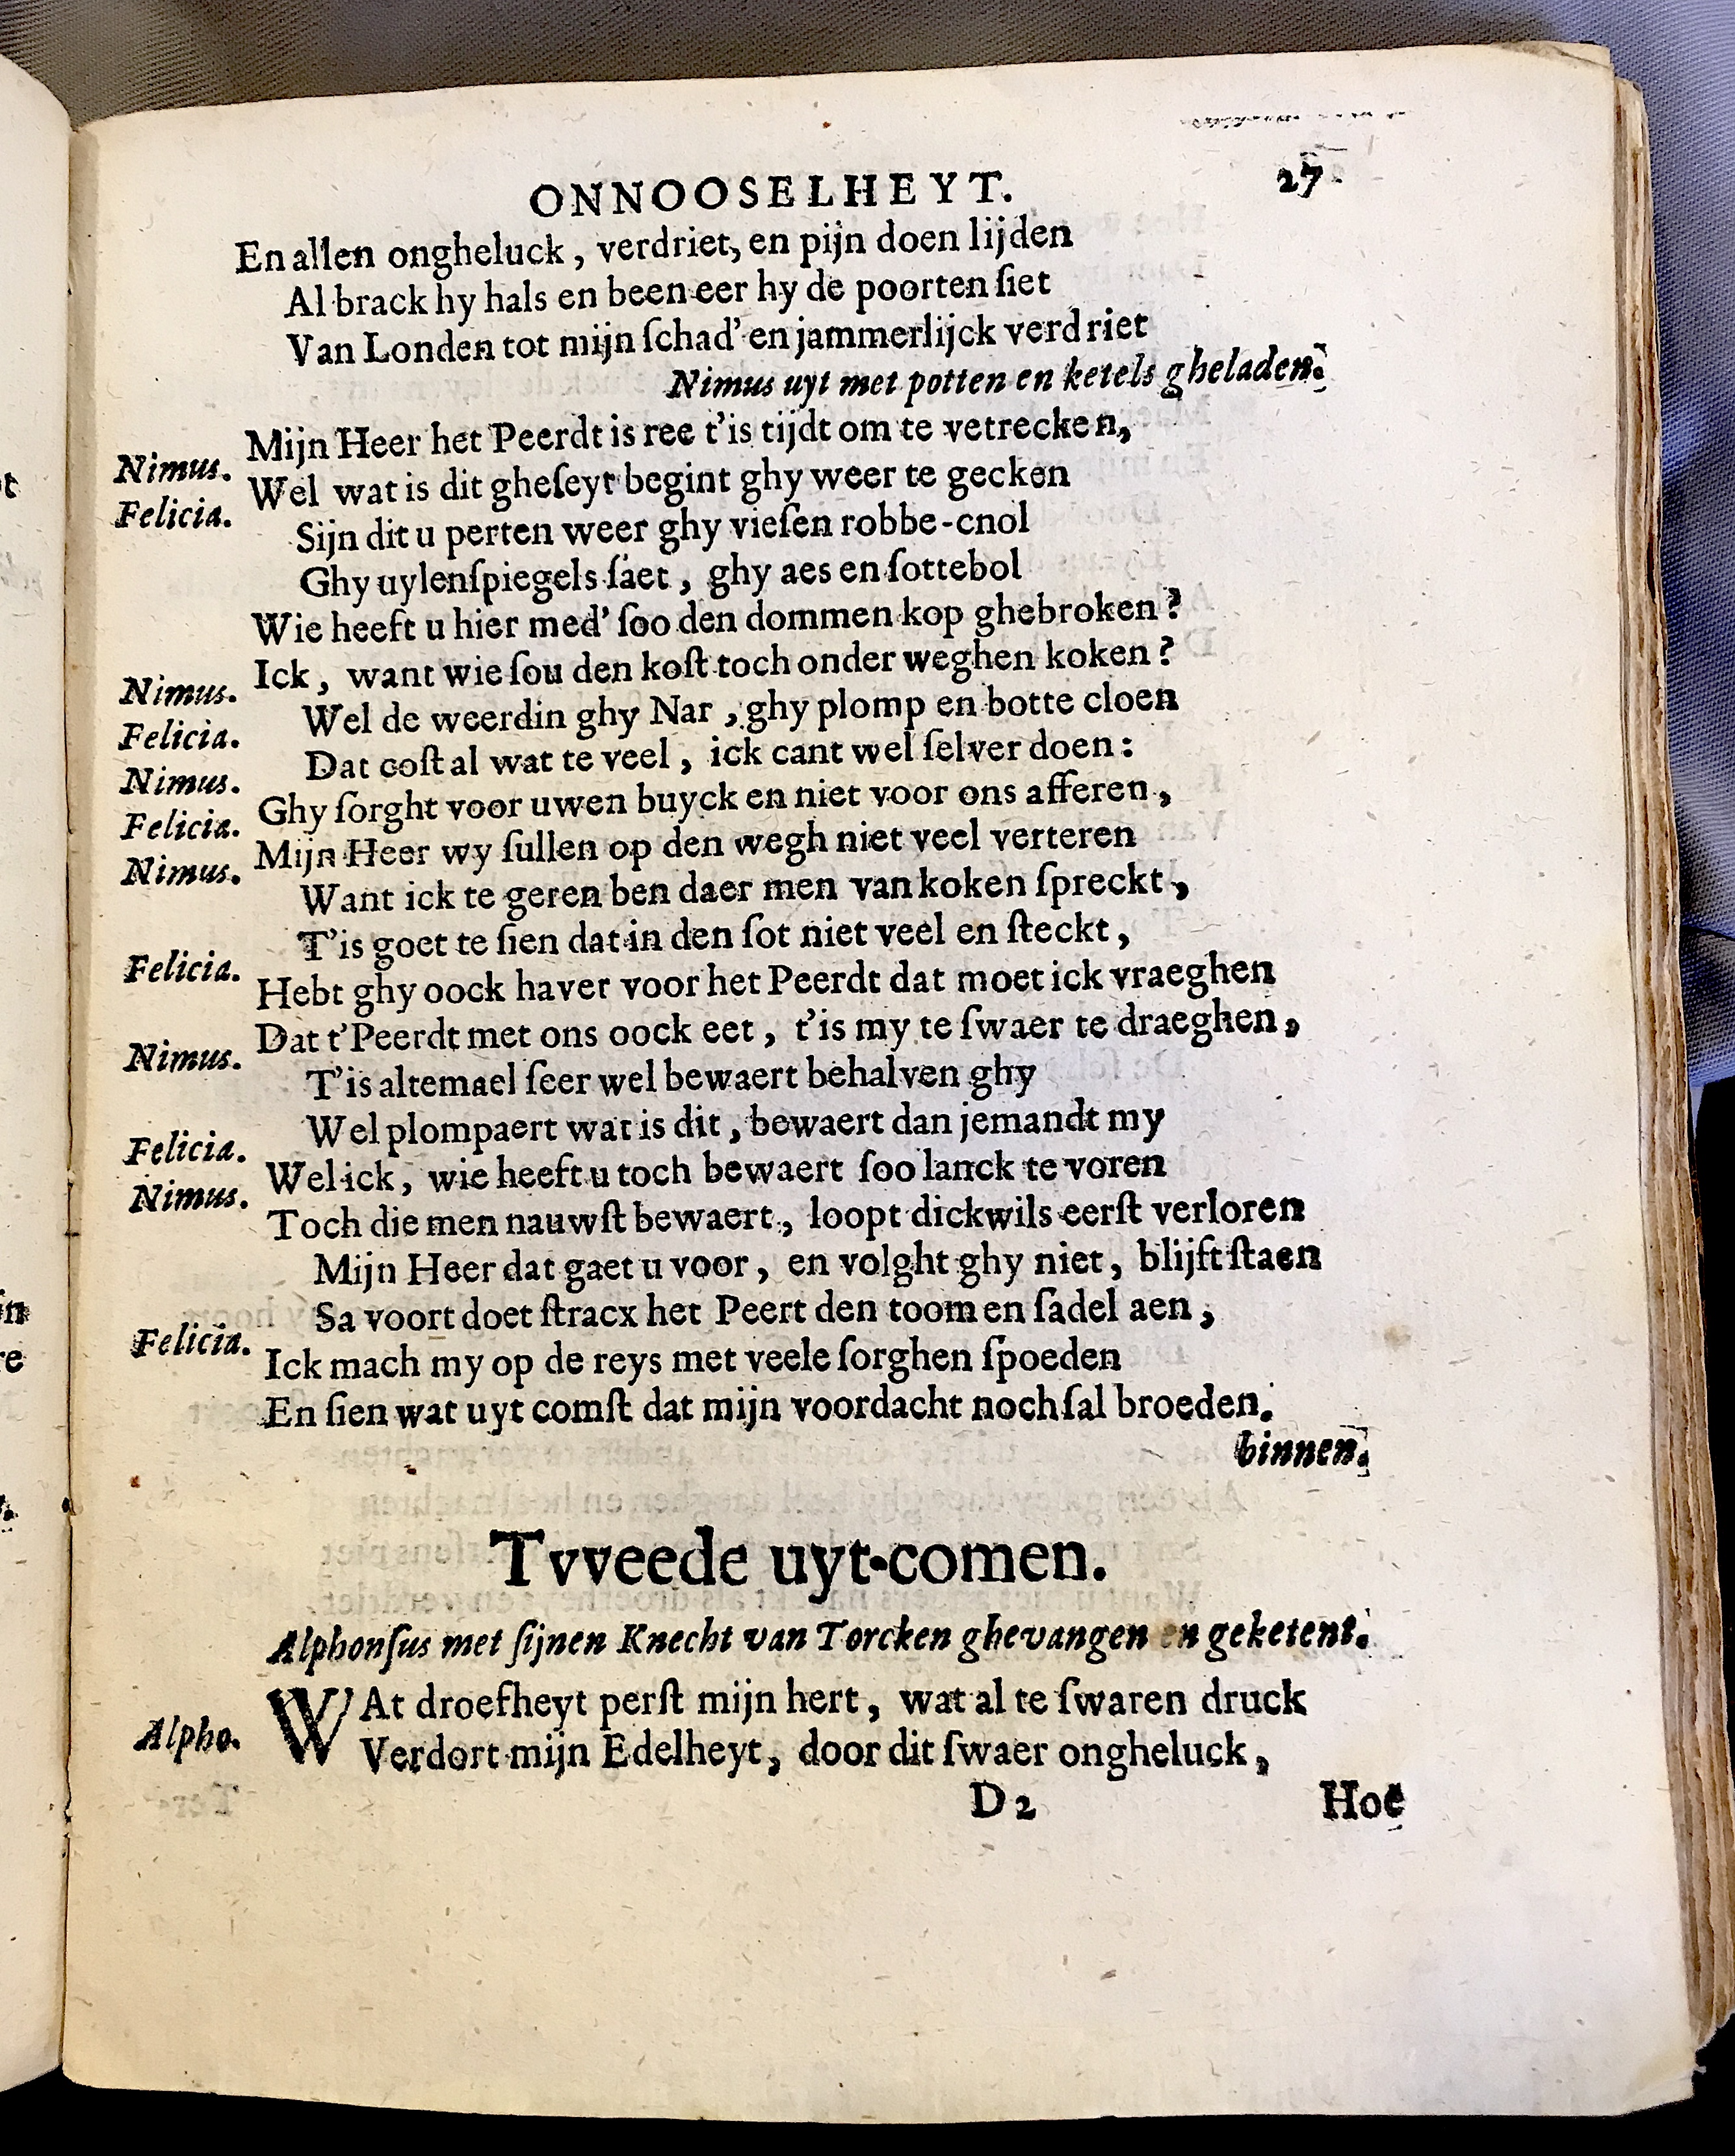 ONNOOSELHEYT. 27
En allen ongheluck, verdriet, en pijn doen lijden
Al brack hy hals en been eer hy de poorten ſiet
Van Londen tot mijn ſchad' en jammerlijck verdriet
Nimus uyt met potten en ketels gheladen.
Nimus. Mijn Heer het Peerdt is ree t'is tijdt om te vetrecken,
Felicia. Wel wat is dit gheſeyt begint ghy weer te gecken
Sijn dit u perten weer ghy vieſen robbe-cnol
Ghy uylenſpiegels ſaet, ghy aes en ſottebol
Wie heeft u hier med' ſoo den dommen kop ghebroken?
Nimus. Ick, want wie ſou den koſt toch onder weghen koken?
Felicia. Wel de weerdin ghy Nar, ghy plomp en botte cloen
Nimus. Dat coſt al wat te veel, ick cant wel ſelver doen:
Felicia. Ghy ſorght voor uwen buyck en niet voor ons afferen,
Nimus. Mijn Heer wy ſullen op den wegh niet veel verteren
Want ick te geren ben daer men van koken ſpreckt,
Felicia. T'is goet te ſien dat in den ſot niet veel en ſteckt,
Hebt ghy oock haver voor het Peerdt dat moet ick vraeghen
Nimus. Dat t'Peerdt met ons oock eet, t'is my te ſwaer te draeghen,
T'is altemael ſeer wel bewaert behalven ghy
Felicia. Wel plompaert wat is dit, bewaert dan jemandt my
Nimus. Wel ick, wie heeft u toch bewaert ſoo lanck te voren
Toch die men nauwſt bewaert, loopt dickwils eerſt verloren
Mijn Heer dat gaet u voor, en volght ghy niet, blijft ſtaen
Felicia. Sa voort doet ſtracx het Peert den toom en ſadel aen,
Ick mach my op de reys met veele ſorghen ſpoeden
En ſien wat uyt comſt dat mijn voordacht noch ſal broeden.
binnen.
Tvveede uyt-comen.
Alphonſus met ſijnen Knecht van Torcken ghevangen en geketent.
Alpho. WAt droefheyt perſt mijn hert, wat al te ſwaren druck
Verdort mijn Edelheyt, door dit ſwaer ongheluck,
D 2 Hoe